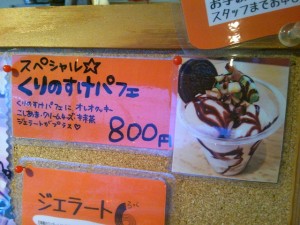 お手
スタッフまでお申
スペシャル☆
くりのすけパフェ
くりのすけパフェに オレオクッキー
こしあん・クリームチーズ・抹茶
ジェラートがプラス♡
800円
ジェラート